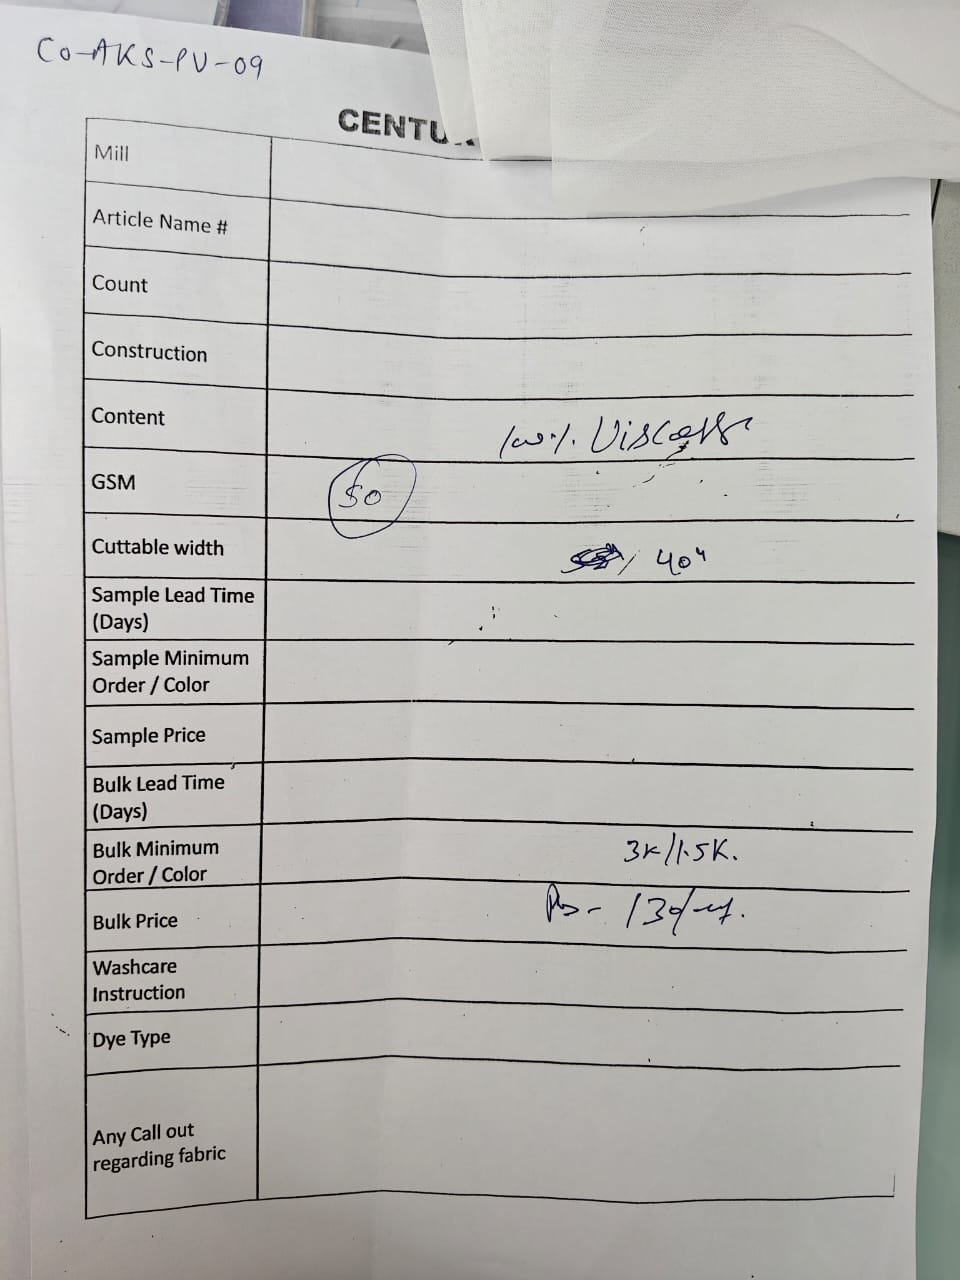 Co-AKS-PV-09
CENTU
Mill
Article Name #
Count
Construction
Content 100%. Viscose
GSM 50
Cuttable width 40"
Sample Lead Time
(Days)
Sample Minimum
Order / Color
Sample Price
Bulk Lead Time
(Days)
Bulk Minimum 3K/1.5K.
Order / Color
Bulk Price Rs - 130/
Washcare
Instruction
Dye Type
Any Call out
regarding fabric